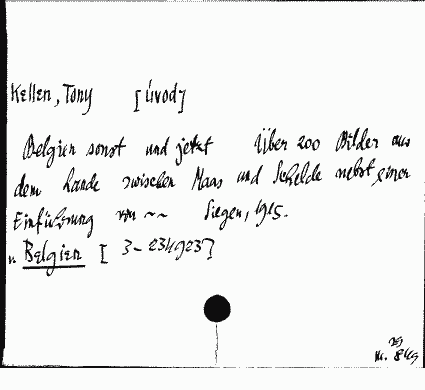 Kellen, Tony [Úvod]
Belgien sonst und jetzt Über 200 Bilder aus
dem Lande zwischen Maas und Schelde nebst einer
Einführung von ~~ Siegen, 1915.
v. Belgien [3-234923]